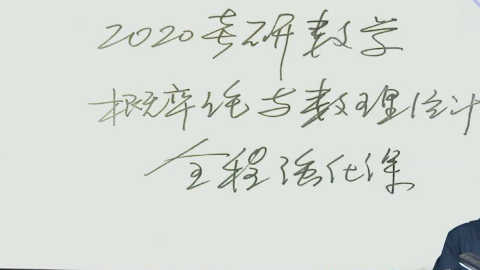 2020考研数学
概率论与数理统计
全程强化课